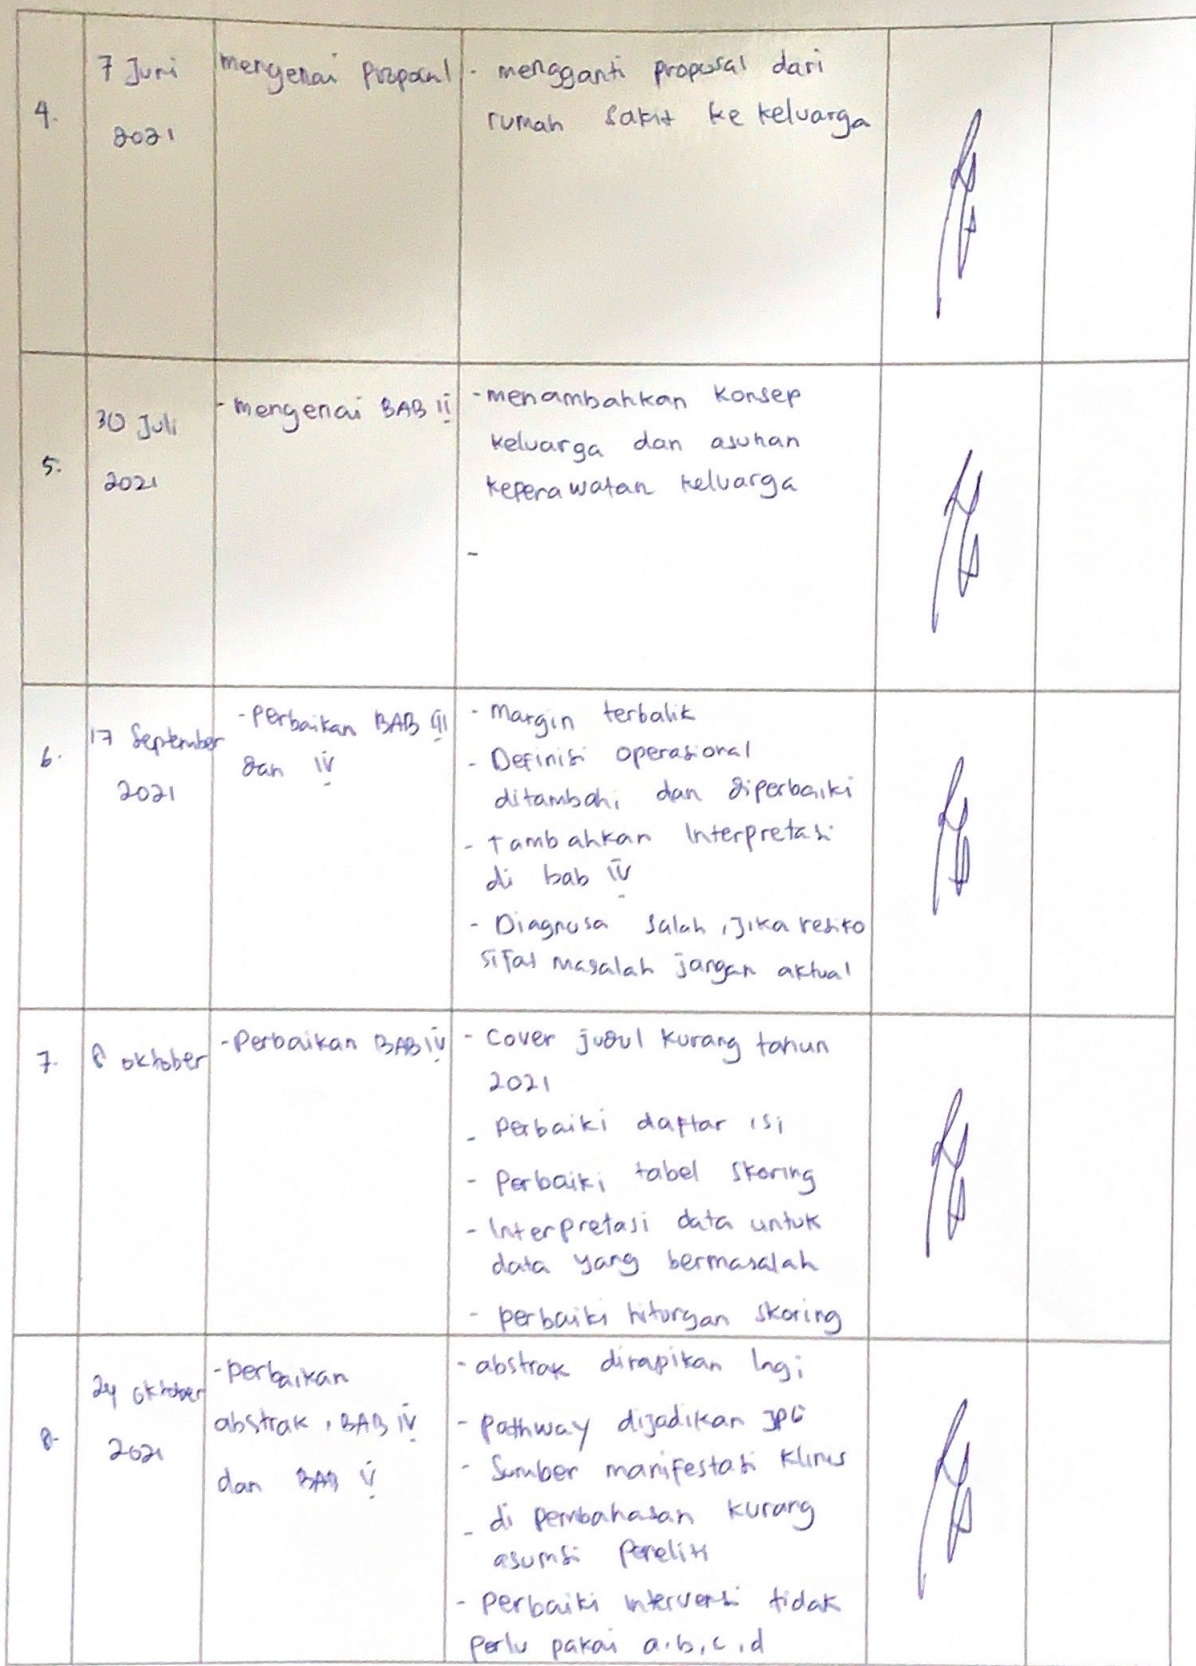 4.
7 Juni
2021
mengenai proposal
- mengganti proposal dari
rumah sakit ke keluarga
5.
30 Juli
2021
- mengenai BAB II
- menambahkan konsep
keluarga dan asuhan
keperawatan keluarga
-
6.
17 September
2021
- Perbaikan BAB III
dan IV
- Margin terbalik
- Definisi operasional
ditambahi dan diperbaiki
- Tambahkan Interpretasi
di bab IV
- Diagnosa salah, Jika resiko
sifat masalah jangan aktual
7.
8 oktober
- Perbaikan BAB IV
- Cover judul kurang tahun
2021
- Perbaiki daftar isi
- Perbaiki tabel skoring
- Interpretasi data untuk
data yang bermasalah
- perbaiki hitungan skoring
8.
24 oktober
2021
- perbaikan
abstrak, BAB IV
dan BAB V
- abstrak dirapikan lagi
- Pathway dijadikan JPG
- Sumber manifestasi klinis
- di pembahasan kurang
asumsi peneliti
- Perbaiki intervensi tidak
perlu pakai a.b,c,d